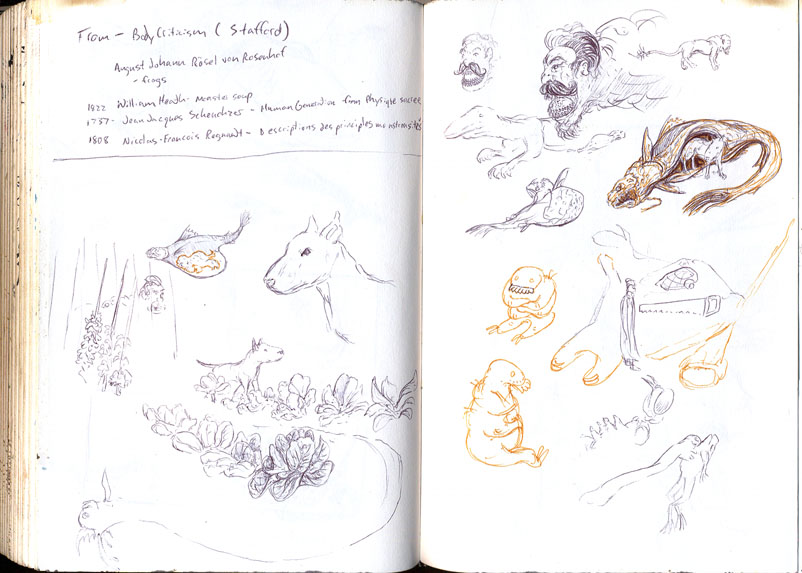 From - Body Criticism (Stafford)
August Johann Rösel von Rosenhof
- frogs
1822 William Heath - Monster soup
1737 - Jean Jacques Scheuchzer - Human Generation from Physique sacree
1808 Nicolas-Francois Regnault - Descriptions des principles monstrosités